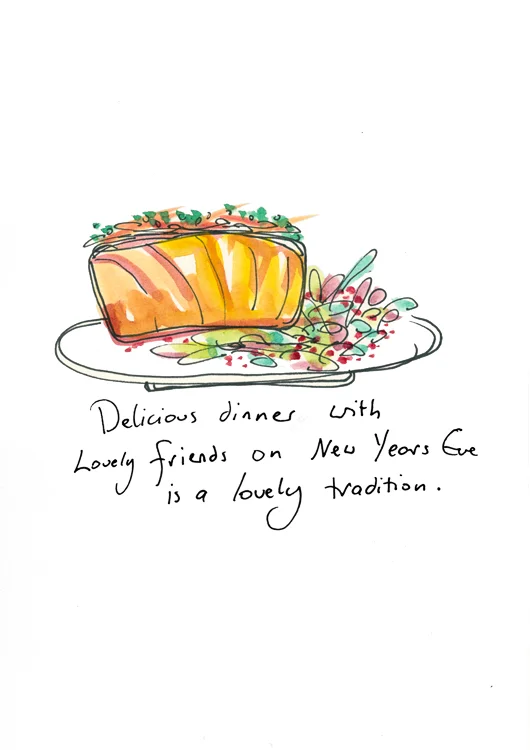 Delicious dinner with
Lovely friends on New Years Eve
is a lovely tradition.